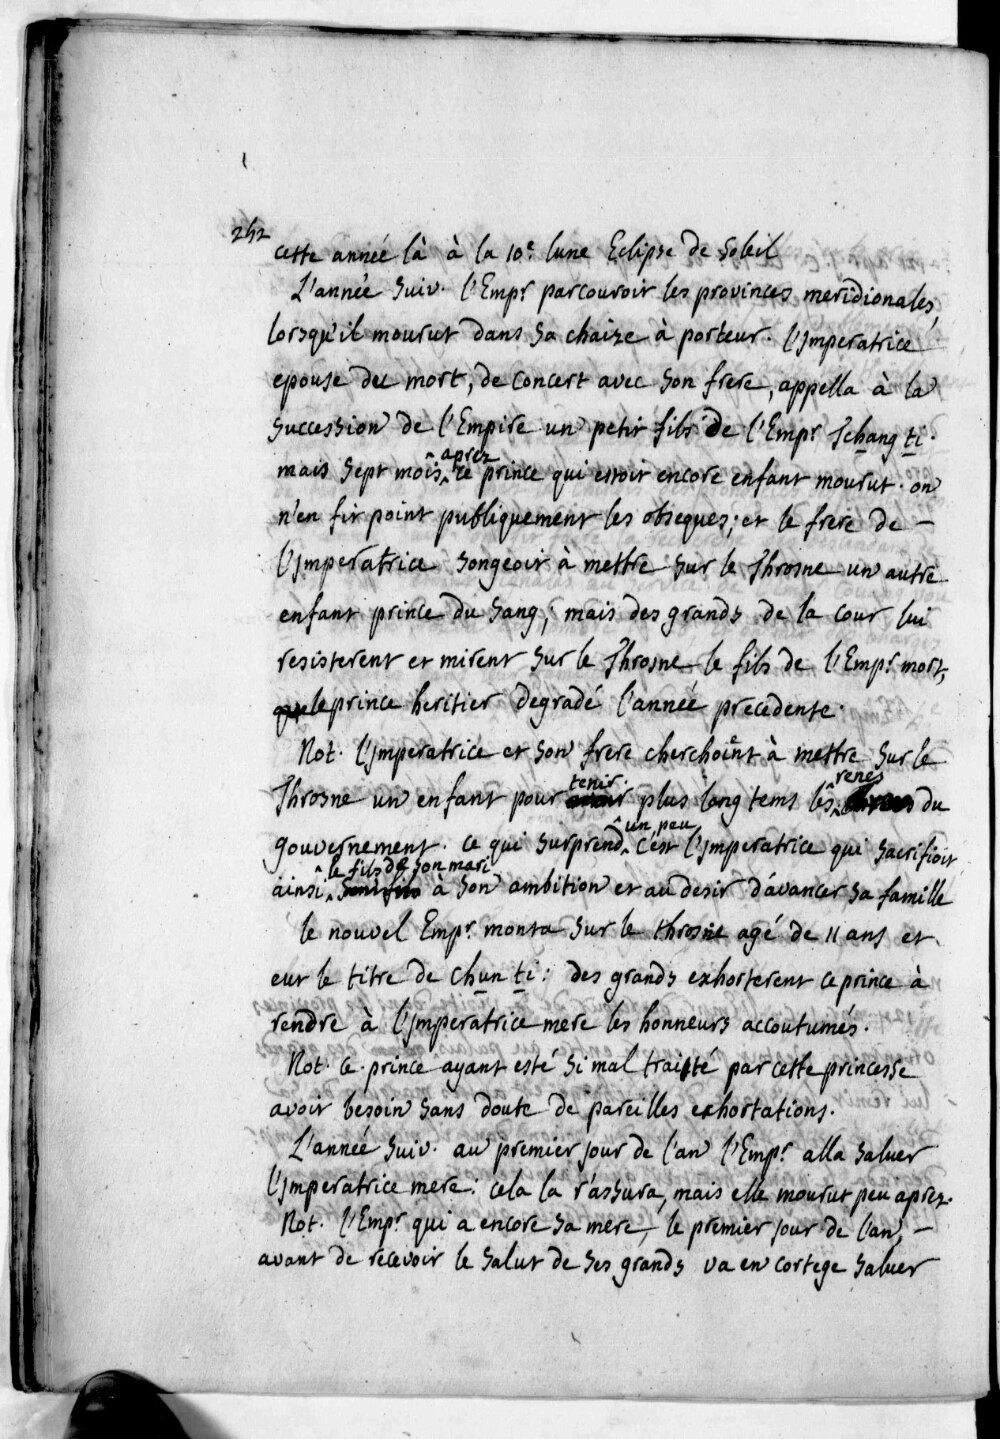 252
cette année là à la 10e lune Eclipse de Soleil
L'année suiv. l'Empr parcouroit les provinces meridionales,
lorsqu'il mourut dans sa chaize à porteur. l'Imperatrice
epouse du mort, de concert avec son frere, appella à la
succession de l'Empire un petit fils de l'Empr Tchang ti.
mais sept mois aprez ce prince qui estoit encore enfant mourut. on
n'en fit point publiquement les obseques; et le frere de —
l'Imperatrice songeoit à mettre sur le Throsne un autre
enfant prince du sang; mais des grands de la cour lui
resisterent et mirent sur le Throsne le fils de l'Empr mort,
le prince heritier degradé l'année precedente.
Not. l'Imperatrice et son frere cherchoint à mettre sur le
Throsne un enfant pour tenir plus long tems les renes du
gouvernement. ce qui surprend un peu c'est l'Imperatrice qui sacrifioit
ainsi le fils de son mari à son ambition et au desir d'avancer sa famille
le nouvel Empr monta sur le throsne agé de 11 ans et
eut le titre de chun ti: des grands exhorterent ce prince à
rendre à l'Imperatrice mere les honneurs accoutumés.
Not. ce prince ayant esté si mal traitté par cette princesse
avoit besoin sans doute de pareilles exhortations.
L'année suiv. au premier jour de l'an l'Empr alla saluer
l'Imperatrice mere: cela la r'assura, mais elle mourut peu aprez.
Not. l'Empr qui a encore sa mere, le premier jour de l'an, —
avant de recevoir le salut de ses grands va en cortege saluer